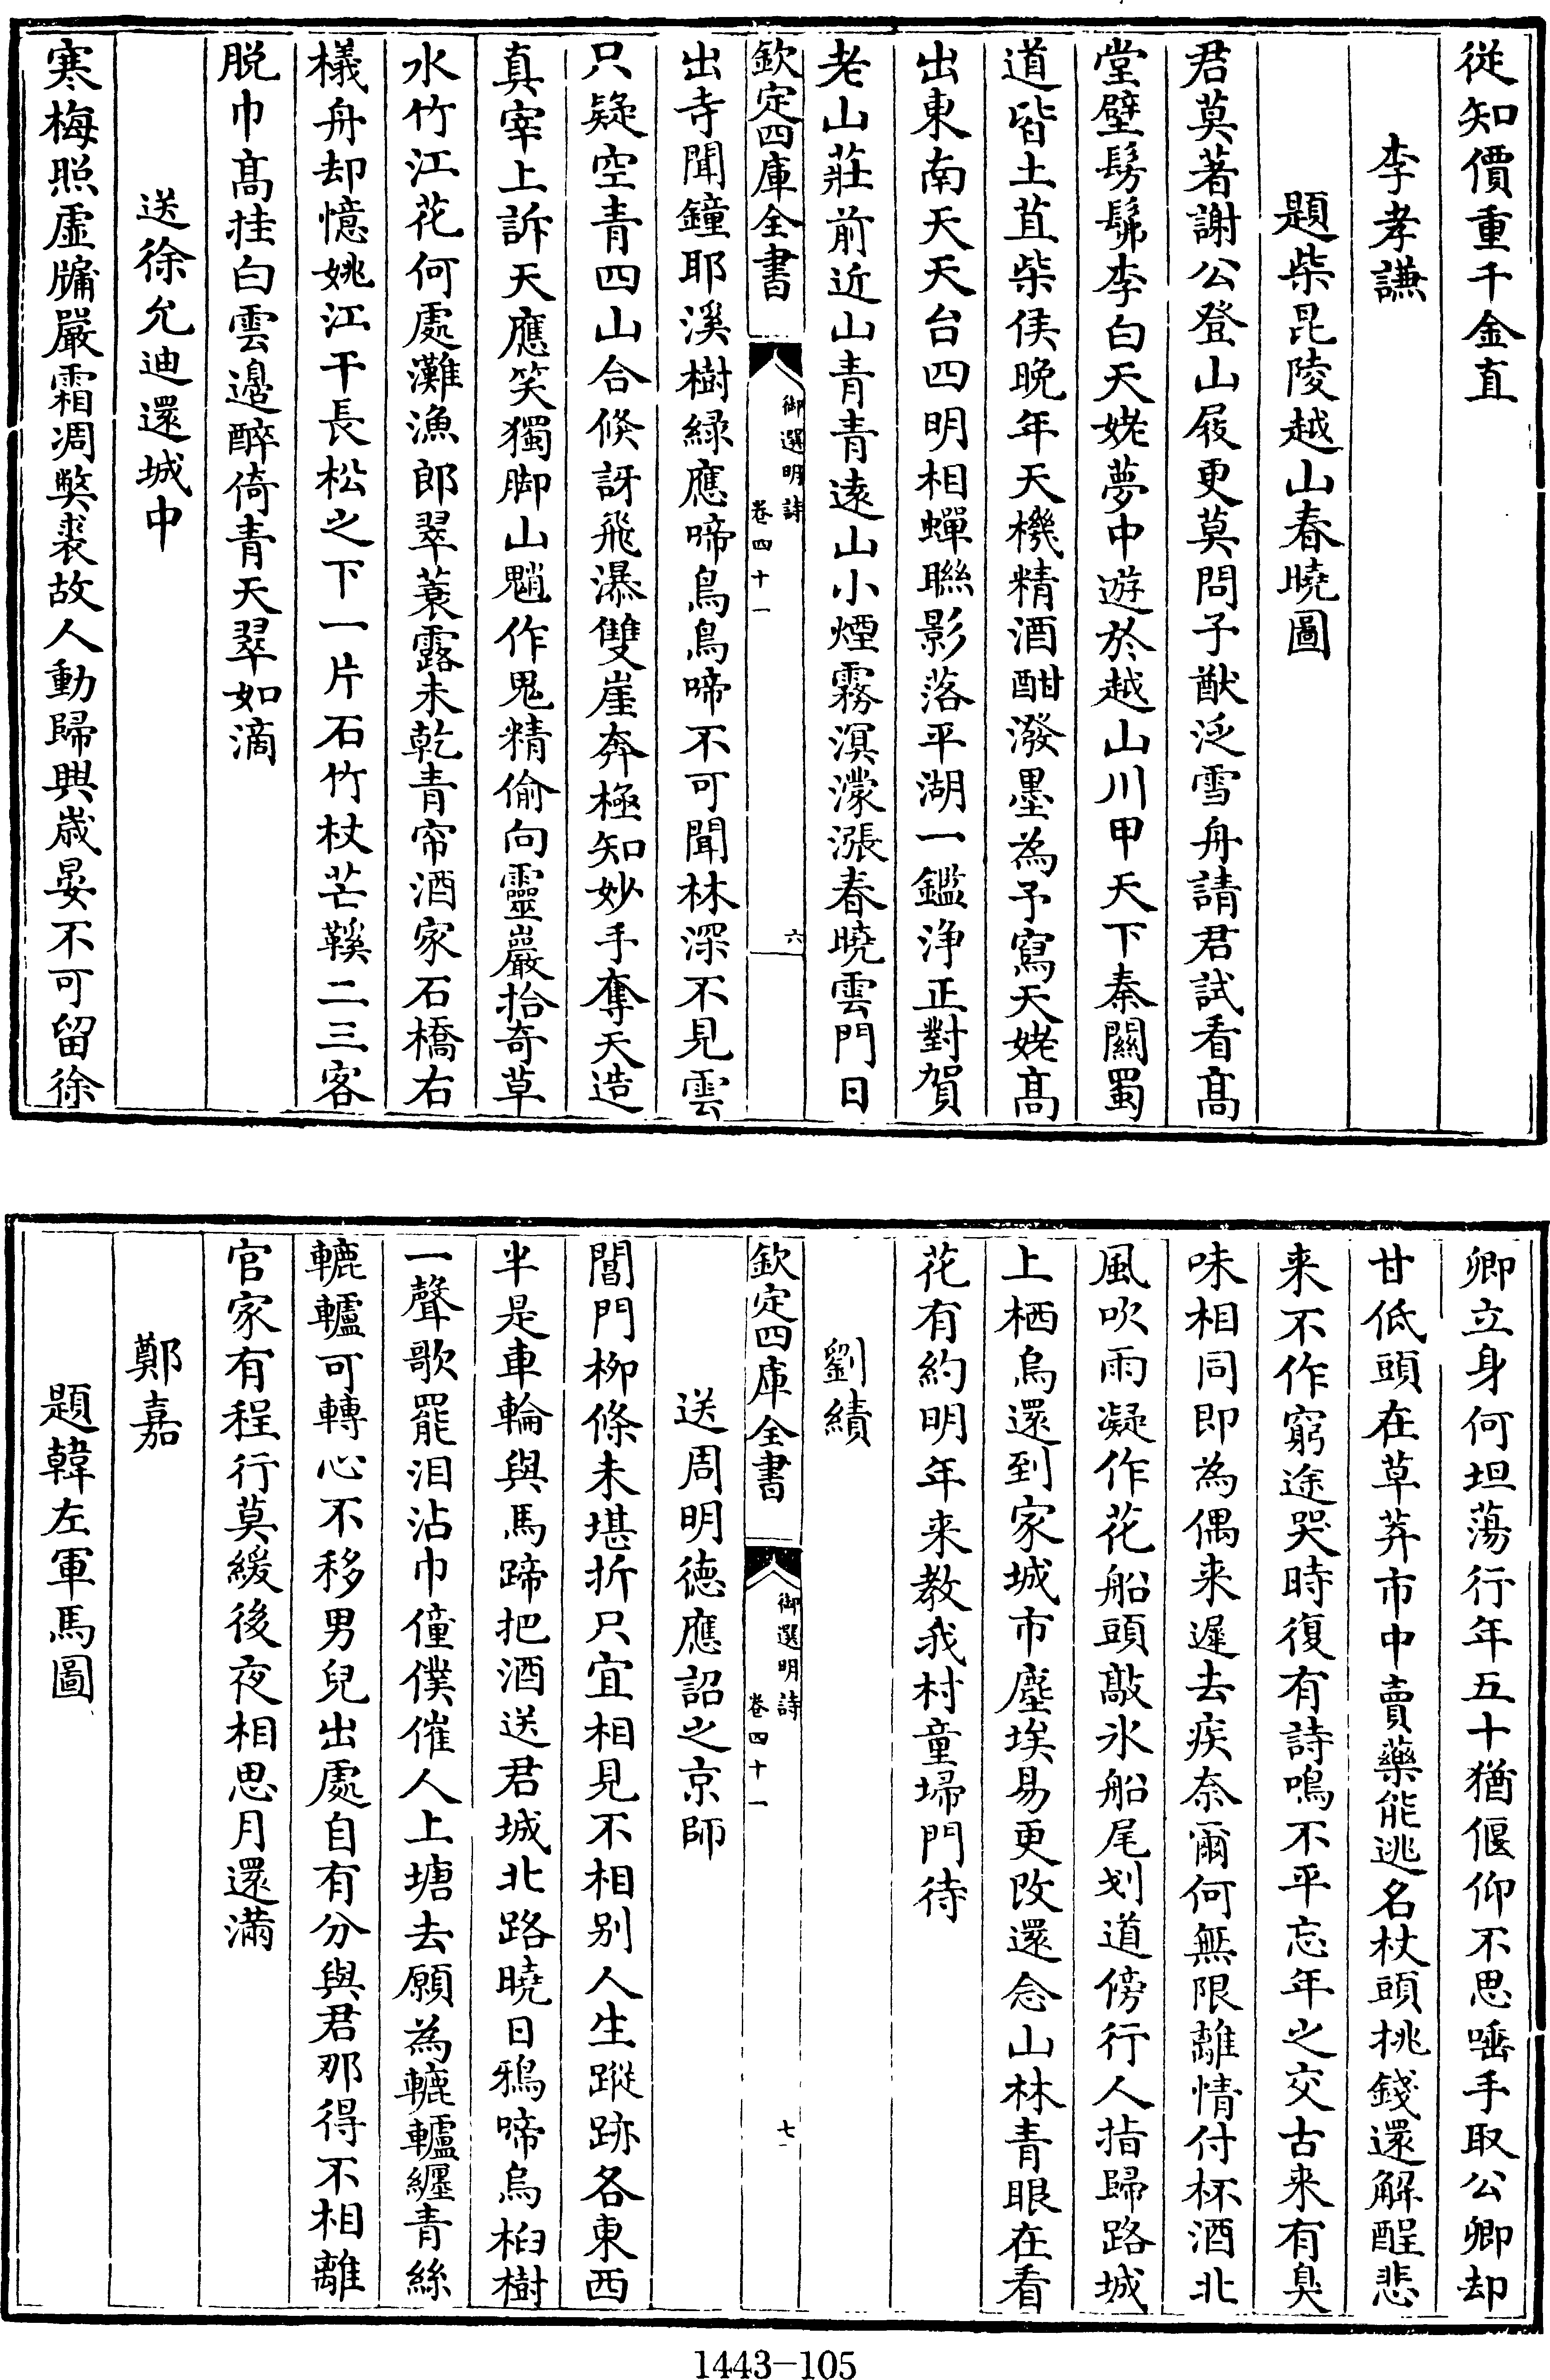 從知價重千金直
李孝謙
題柴毘陵越山春曉圖
君莫著謝公登山屐更莫問子猷泛雪舟請君試看髙
堂壁髣髴李白天姥夢中遊於越山川甲天下秦關蜀
道皆土苴柴侯晩年天機精酒酣潑墨為予寫天姥髙
出東南天天台四明相蟬聯影落平湖一鑑浄正對賀
老山莊前近山青青逺山小煙霧溟濛漲春曉雲門日
欽定四庫全書
御選明詩
卷四十一
六
出寺聞鐘耶溪樹緑應啼鳥鳥啼不可聞林深不見雲
只疑空青四山合倐訝飛瀑雙崖奔極知妙手奪天造
真宰上訴天應笑獨脚山魈作鬼精偷向靈巖拾竒草
水竹江花何處灘漁郎翠蓑露未乾青帘酒家石橋右
檥舟却憶姚江干長松之下一片石竹杖芒鞵二三客
脱巾髙挂白雲邉醉倚青天翠如滴
送徐允迪還城中
寒梅照虛牖嚴霜凋獘裘故人動歸興歲晏不可留徐
卿立身何坦蕩行年五十猶偃仰不思唾手取公卿却
甘低頭在草莽市中賣藥能逃名杖頭挑錢還解酲悲
来不作窮途哭時復有詩鳴不平忘年之交古来有臭
味相同即為偶来遲去疾奈爾何無限離情付杯酒北
風吹雨凝作花船頭敲氷船尾划道傍行人指歸路城
上栖烏還到家城市塵埃易更改還念山林青眼在看
花有約明年来教我村童埽門待
劉績
欽定四庫全書
御選明詩
卷四十一
七
送周明徳應詔之京師
閶門柳條未堪折只宜相見不相别人生蹤跡各東西
半是車輪與馬蹄把酒送君城北路曉日鴉啼烏桕樹
一聲歌罷泪沾巾僮僕催人上塘去願為轆轤纒青絲
轆轤可轉心不移男兒出處自有分與君那得不相離
官家有程行莫緩後夜相思月還滿
鄭嘉
題韓左軍馬圖
1443-105